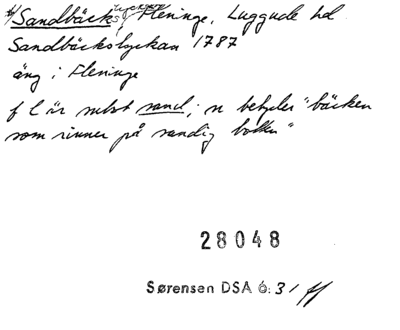 Sandbäck, Fleninge, Luggude hd
Sandbäckslyckan 1787
äng i Fleninge
f l är subst sand; n betyder "bäcken
som rinner på sandig botten"
28048
Sørensen DSA 6: 31 ff